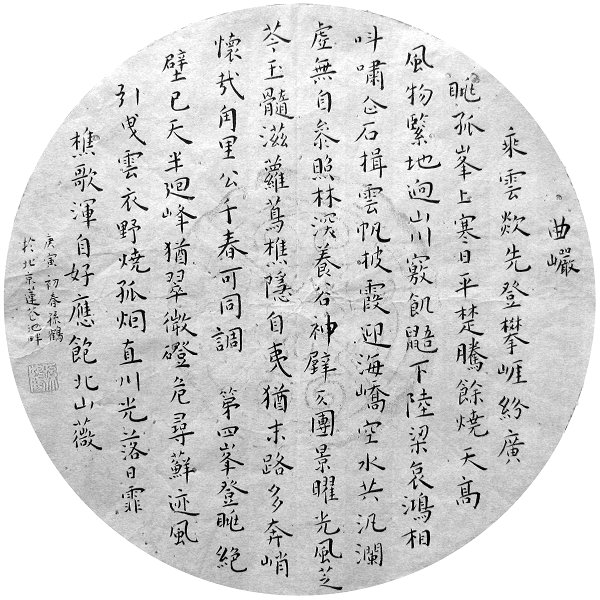 曲巘
乘雲欻先登攀崕紛廣
眺孤峯上寒日平楚騰餘燒天高
風物緊地逈山川竅飢鼯下陸梁哀鴻相
叫嘯念石揖雲帆披霞迎海嶠空水共汎瀾
虛無自參照林深養谷神壁仄團景曜光風芝
苓玉髓滋蘿蔦樵隱自夷猶末路多奔峭
懷哉甪里公千春可同調 第四峯登眺絕
壁已天半迴峰猶翠微磴危尋蘚迹風
引曳雲衣野燒孤烟直川光落日霏
樵歌渾自好應飽北山薇
庚寅初春孫鶴
於北京蓮花池畔